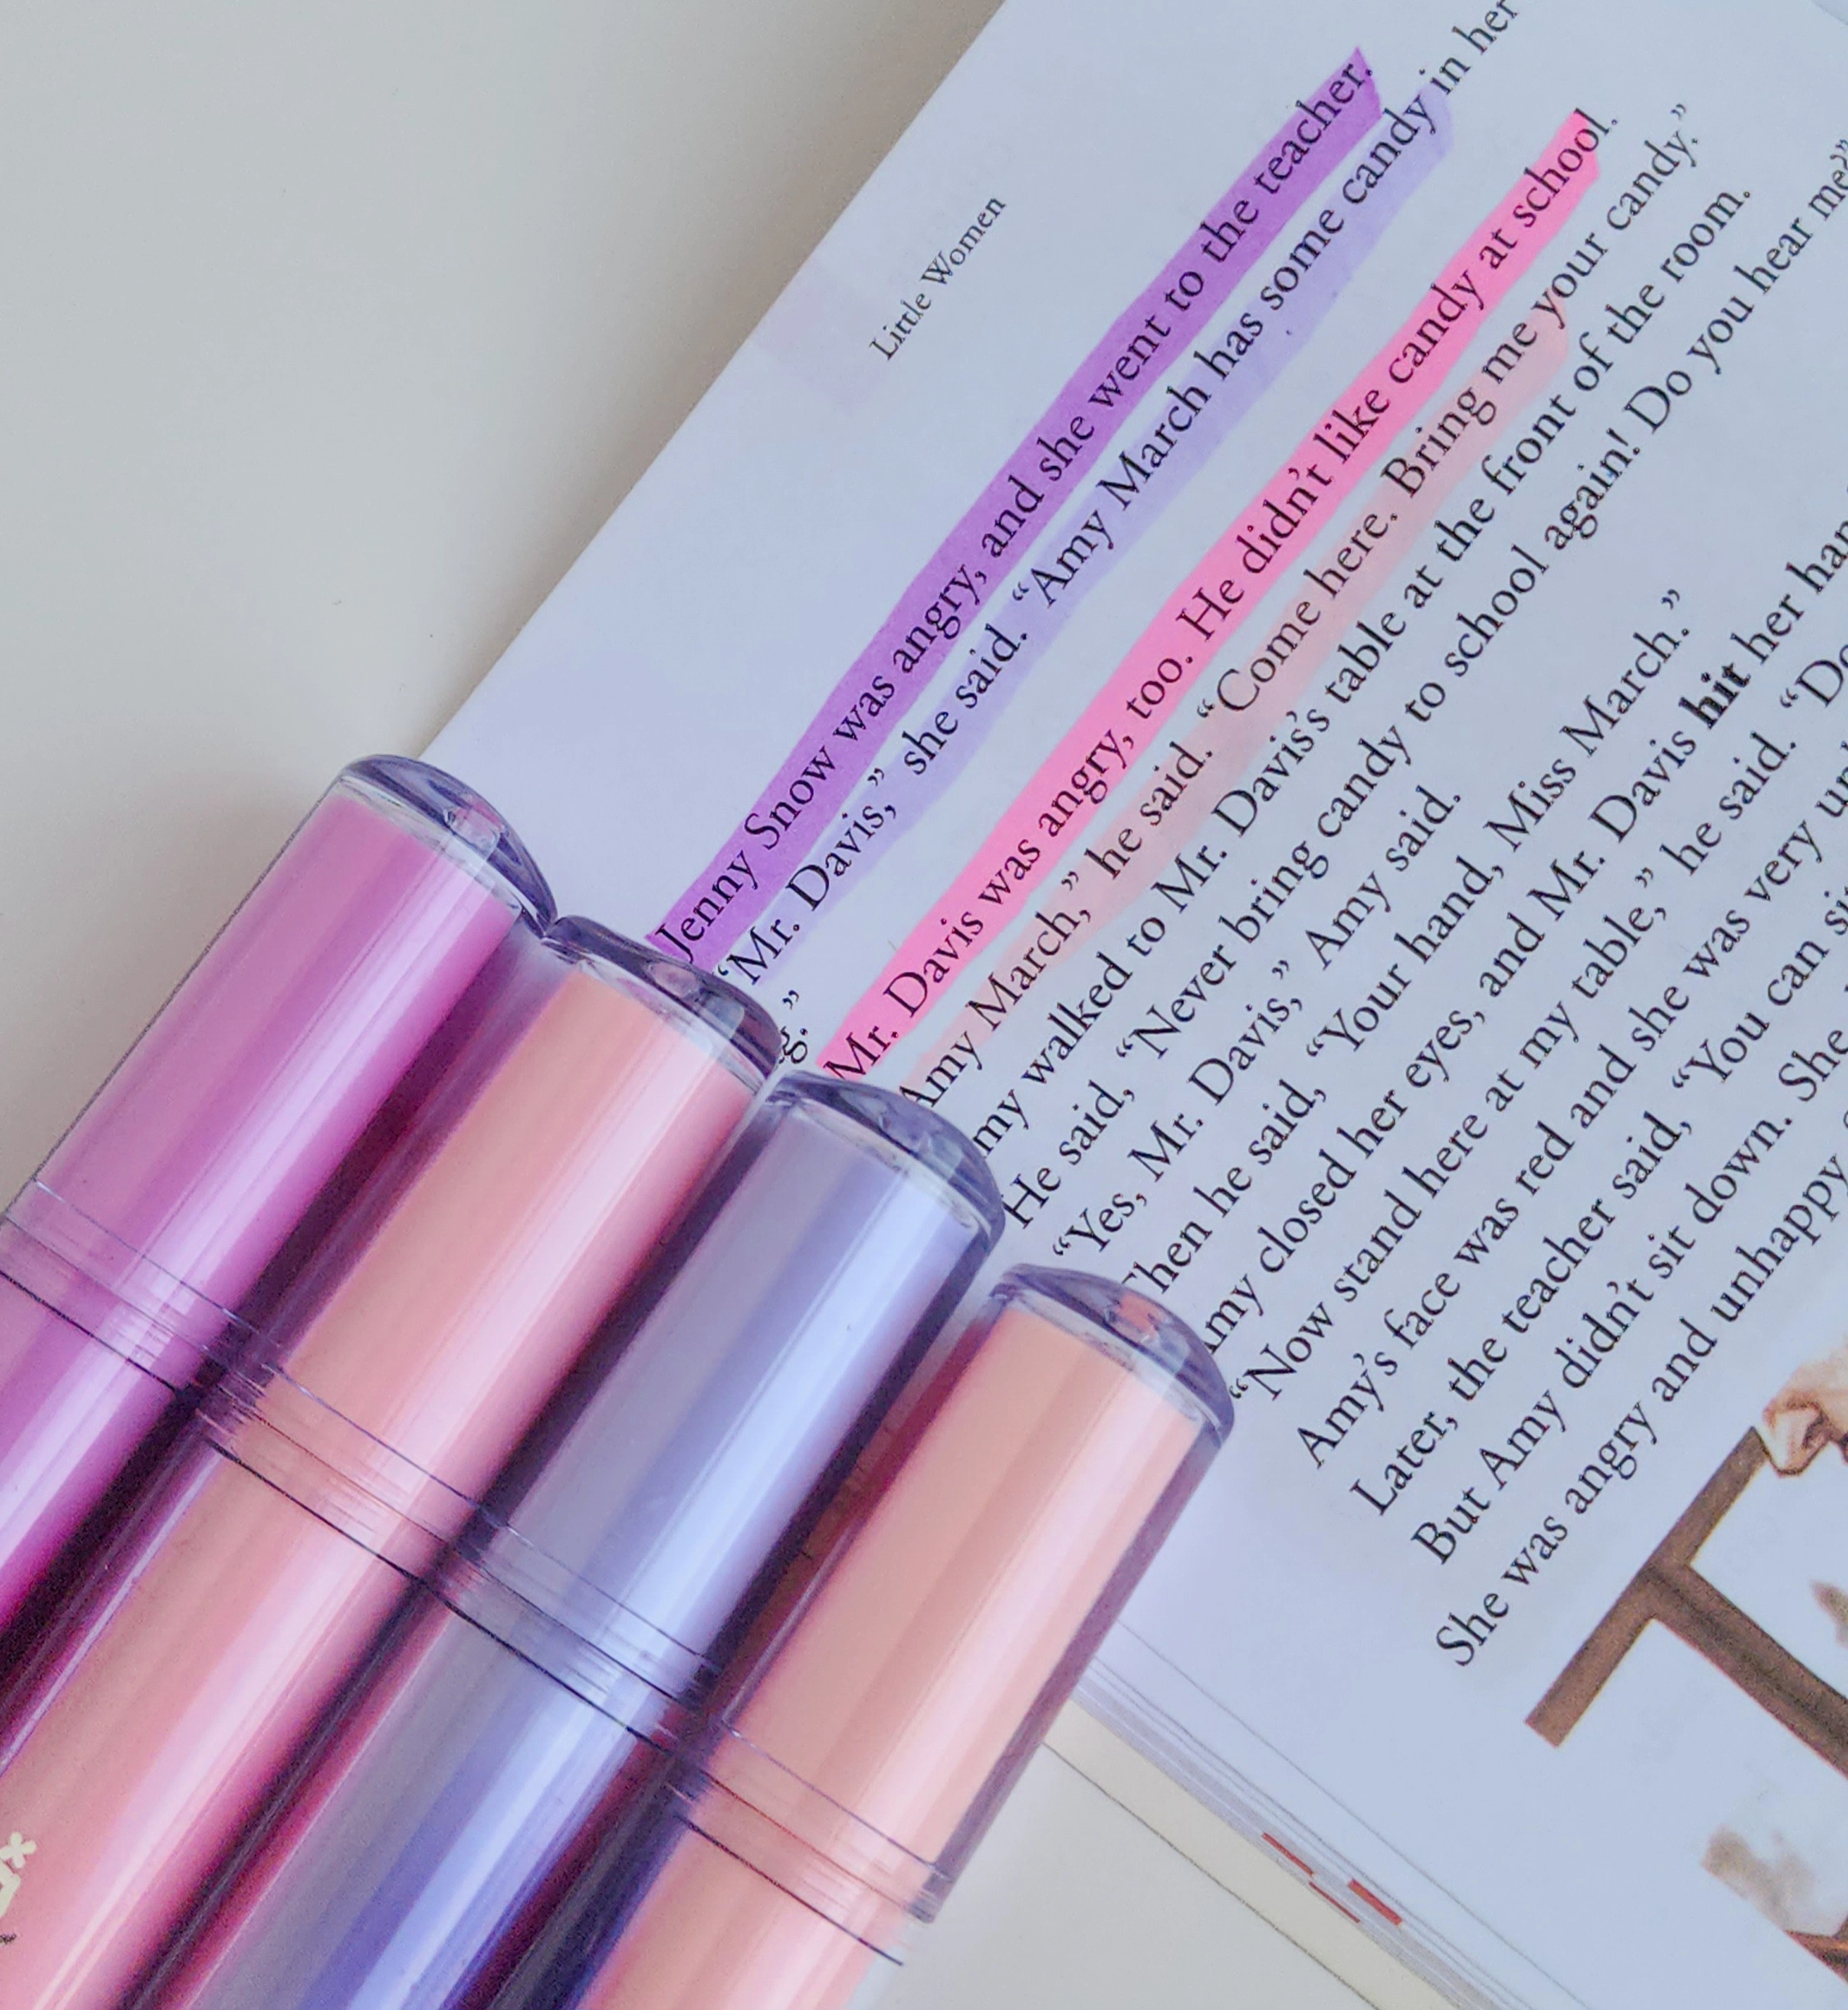 Little Women
Jenny Snow was angry, and she went to the teacher.
“Mr. Davis,” she said. “Amy March has some candy in her
g.”
Mr. Davis was angry, too. He didn’t like candy at school.
“Amy March,” he said. “Come here. Bring me your candy.”
my walked to Mr. Davis’s table at the front of the room.
He said, “Never bring candy to school again! Do you hear me?”
“Yes, Mr. Davis,” Amy said.
Then he said, “Your hand, Miss March.”
Amy closed her eyes, and Mr. Davis hit her han
“Now stand here at my table,” he said. “Do
Amy’s face was red and she was very un
Later, the teacher said, “You can si
But Amy didn’t sit down. She
She was angry and unhappy